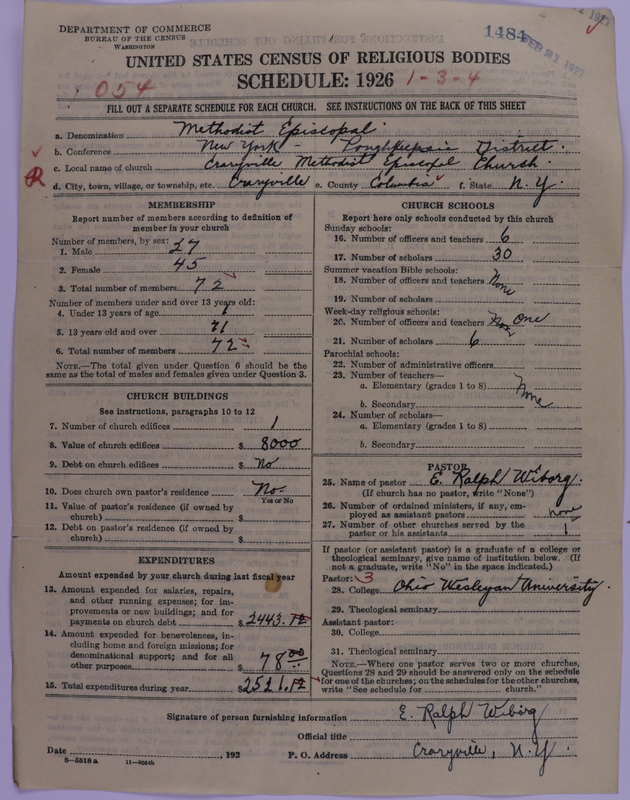 DEPARTMENT OF COMMERCE
BUREAU OF THE CENSUS
WASHINGTON
1484
FEB 21 1927
UNITED STATES CENSUS OF RELIGIOUS BODIES
SCHEDULE: 1926
054
1-3-4
FILL OUT A SEPARATE SCHEDULE FOR EACH CHURCH. SEE INSTRUCTIONS ON THE BACK OF THIS SHEET
a. Denomination Methodist Episcopal
b. Conference New York - Poughkeepsie District.
c. Local name of church Craryville Methodist Episcopal Church.
d. City, town, village, or township, etc. Craryville e. County Columbia f. State N. Y.
MEMBERSHIP
Report number of members according to definition of
member in your church
Number of members, by sex:
1. Male 27
2. Female 45
3. Total number of members 72
Number of members under and over 13 years old:
4. Under 13 years of age 1
5. 13 years old and over 71
6. Total number of members 72
NOTE.—The total given under Question 6 should be the
same as the total of males and females given under Question 3.
CHURCH BUILDINGS
See instructions, paragraphs 10 to 12
7. Number of church edifices 1
8. Value of church edifices $ 8000
9. Debt on church edifices $ No
10. Does church own pastor's residence No
Yes or No
11. Value of pastor's residence (if owned by
church) $
12. Debt on pastor's residence (if owned by
church) $
EXPENDITURES
Amount expended by your church during last fiscal year
13. Amount expended for salaries, repairs,
and other running expenses; for im-
provements or new buildings; and for
payments on church debt $ 2443.
14. Amount expended for benevolences, in-
cluding home and foreign missions; for
denominational support; and for all
other purposes $ 78 00
15. Total expenditures during year $ 2521.
CHURCH SCHOOLS
Report here only schools conducted by this church
Sunday schools:
16. Number of officers and teachers 6
17. Number of scholars 30
Summer vacation Bible schools:
18. Number of officers and teachers None
19. Number of scholars
Week-day religious schools:
20. Number of officers and teachers None One
21. Number of scholars 6
Parochial schools:
22. Number of administrative officers
23. Number of teachers—
a. Elementary (grades 1 to 8) None
b. Secondary
24. Number of scholars—
a. Elementary (grades 1 to 8)
b. Secondary
PASTOR
25. Name of pastor E. Ralph Wiborg.
(If church has no pastor, write "None")
26. Number of ordained ministers, if any, em-
ployed as assistant pastors none
27. Number of other churches served by the
pastor or his assistants 1
If pastor (or assistant pastor) is a graduate of a college or
theological seminary, give name of institution below. (If
not a graduate, write "No" in the space indicated.)
Pastor: 3
28. College Ohio Wesleyan University.
29. Theological seminary
Assistant pastor:
30. College
31. Theological seminary
NOTE.—Where one pastor serves two or more churches,
Questions 28 and 29 should be answered only on the schedule
for one of the churches; on the schedules for the other churches,
write "See schedule for church."
Signature of person furnishing information E. Ralph Wiborg
Official title
Date , 192 P. O. Address Craryville, N. Y.
8-5518 a